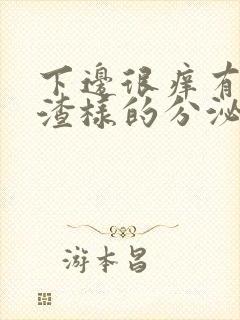 下邊很痒有
渣樣的分泌
游本昌